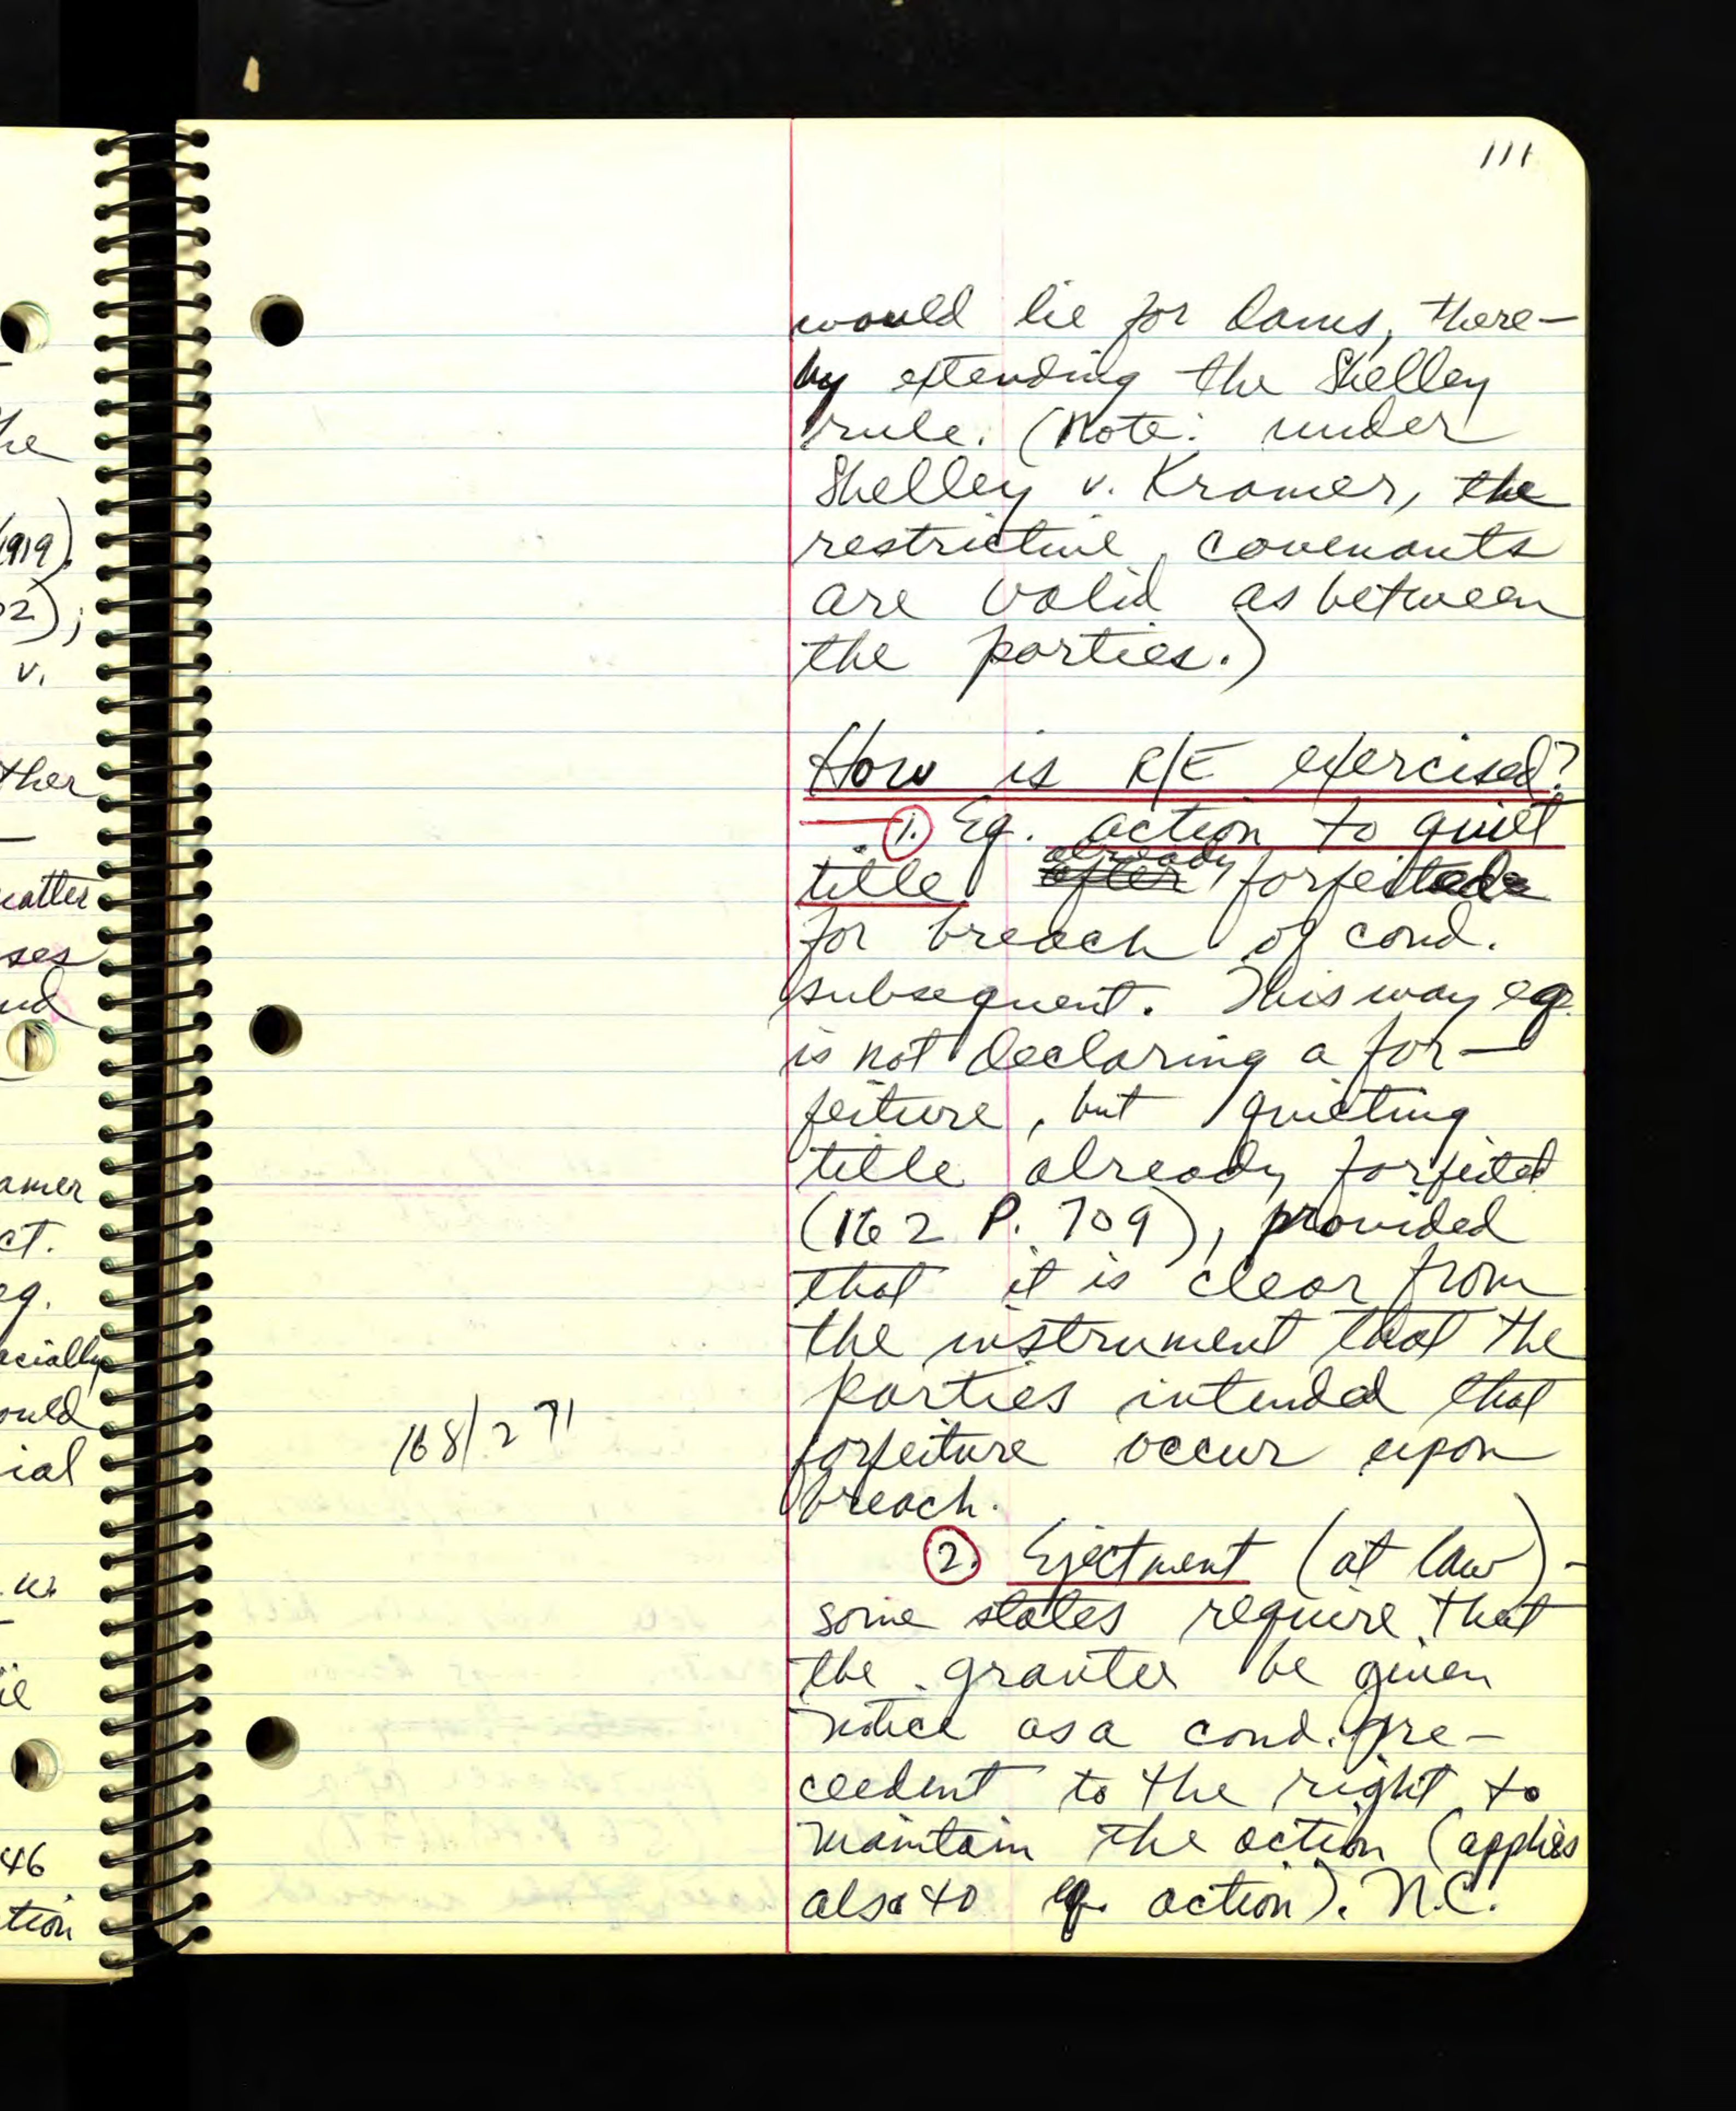 111
would lie for dams, there-
by extending the Shelley
rule. (Note: under
Shelley v. Kramer, the
restrictive covenants
are valid as between
the parties.)
How is R/E exercised?
1. Eq. action to quiet
title after already forfeited
for breach of cond.
subsequent. This way eq.
is not declaring a for-
feiture, but quieting
title already forfeited
(162 P. 709), provided
that it is clear from
the instrument that the
parties intended that
forfeiture occur upon
breach.
168/271
2. Ejectment (at law) -
some states require that
the grantee be given
notice as a cond. pre-
cedent to the right to
maintain the action (applies
also to eq. action). N.C.
he
1919).
02);
v.
ther
matter
ses
nd
amer
ct.
eq.
ecially
ould
ial
w.
46
tion